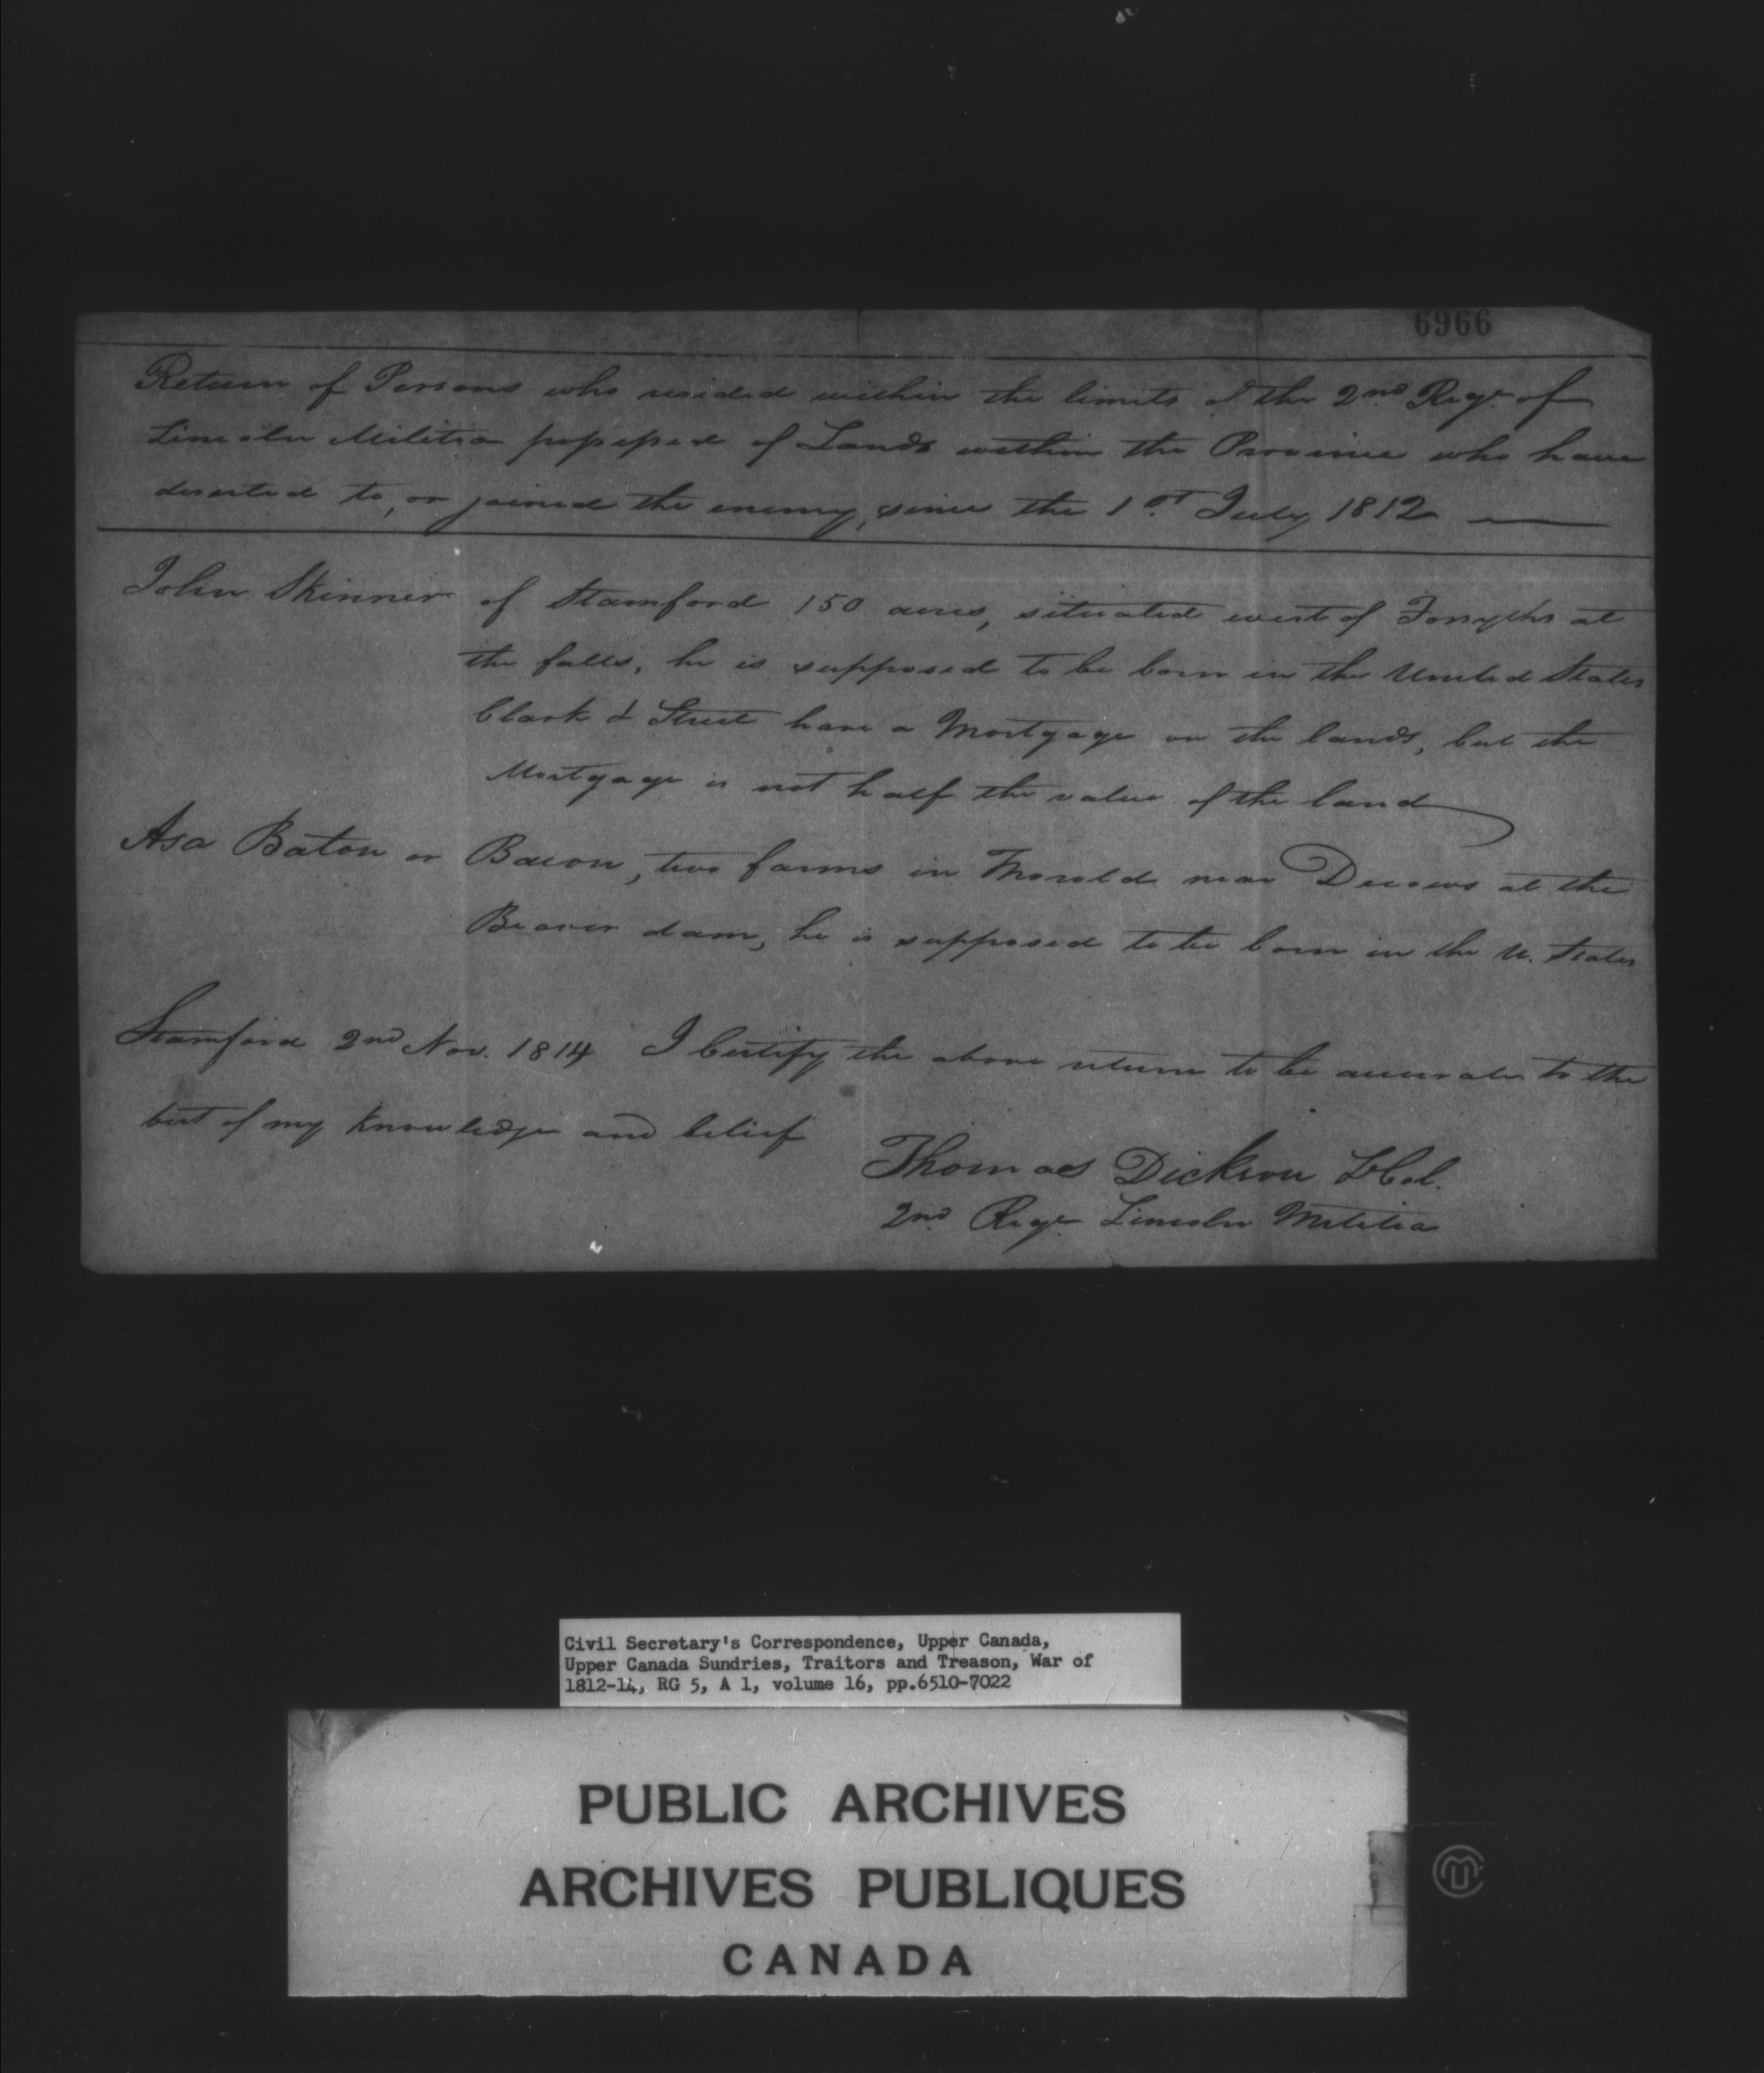 6966
Return of Persons who resided within the limits of the 2nd Regt. of
Lincoln Militia possessed of Lands within the Province who have
deserted to, or joined the enemy, since the 1st July 1812
John Skinner of Stamford 150 acres, situated west of Forsyths at
the falls, he is supposed to be born in the United States
Clark & Street have a Mortgage on the lands, but the
Mortgage is not half the value of the land
Asa Baton or Bacon, two farms in Thorold near Decows at the
Beaver dam, he is supposed to be born in the U. States
Stamford 2nd Nov. 1814 I Certify the above return to be accurate to the
best of my knowledge and belief
Thomas Dickson Lt Col.
2nd Regt Lincoln Militia
Civil Secretary's Correspondence, Upper Canada,
Upper Canada Sundries, Traitors and Treason, War of
1812-14, RG 5, A 1, volume 16, pp.6510-7022
PUBLIC ARCHIVES
ARCHIVES PUBLIQUES
CANADA